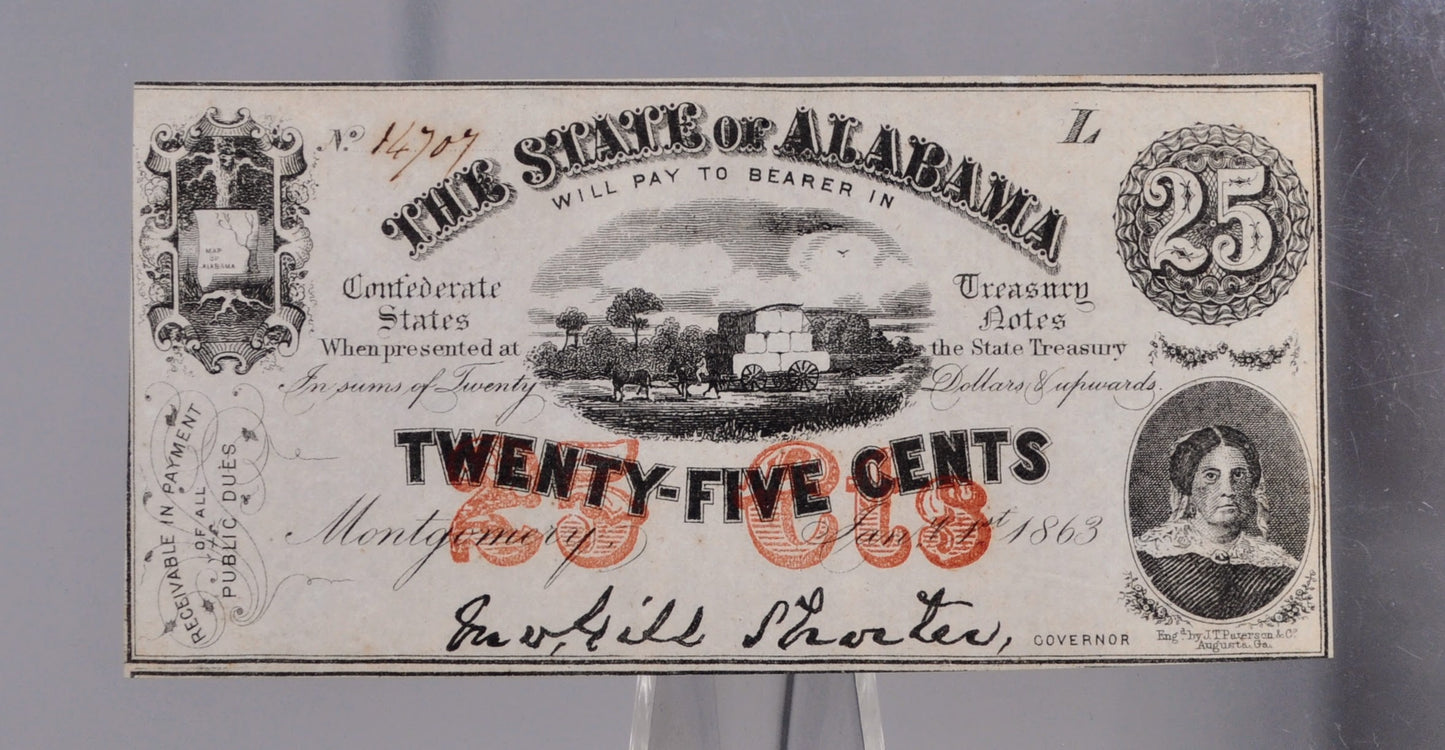 Nº 14707
L
THE STATE OF ALABAMA
WILL PAY TO BEARER IN
25
MAP
OF
ALABAMA
Confederate
States
Treasury
Notes
When presented at
the State Treasury
In sums of Twenty
Dollars & upwards.
TWENTY-FIVE CENTS
25 Cts
Montgomery, Jany. 1st 1863
RECEIVABLE IN PAYMENT
OF ALL
PUBLIC DUES
Jno, Gill Shorter, GOVERNOR
Engd. by J.T. Paterson & Co.
Augusta. Ga.